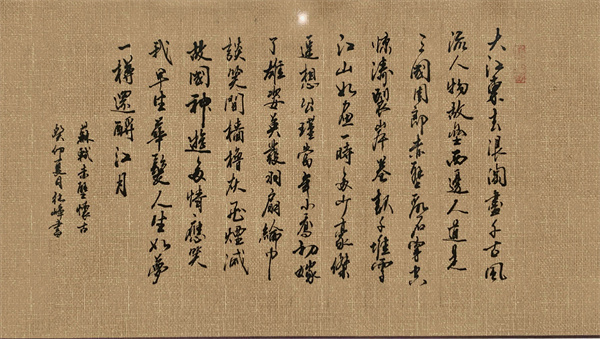 大江東去浪淘盡千古風
流人物故壘西邊人道是
三國周郎赤壁亂石穿空
惊濤裂岸卷起千堆雪
江山如画一時多少豪傑
遙想公瑾當年小喬初嫁
了雄姿英發羽扇綸巾
談笑間檣櫓灰飛煙滅
故國神遊多情應笑
我早生華髮人生如夢
一樽還酹江月
蘇軾赤壁懷古
癸卯日書